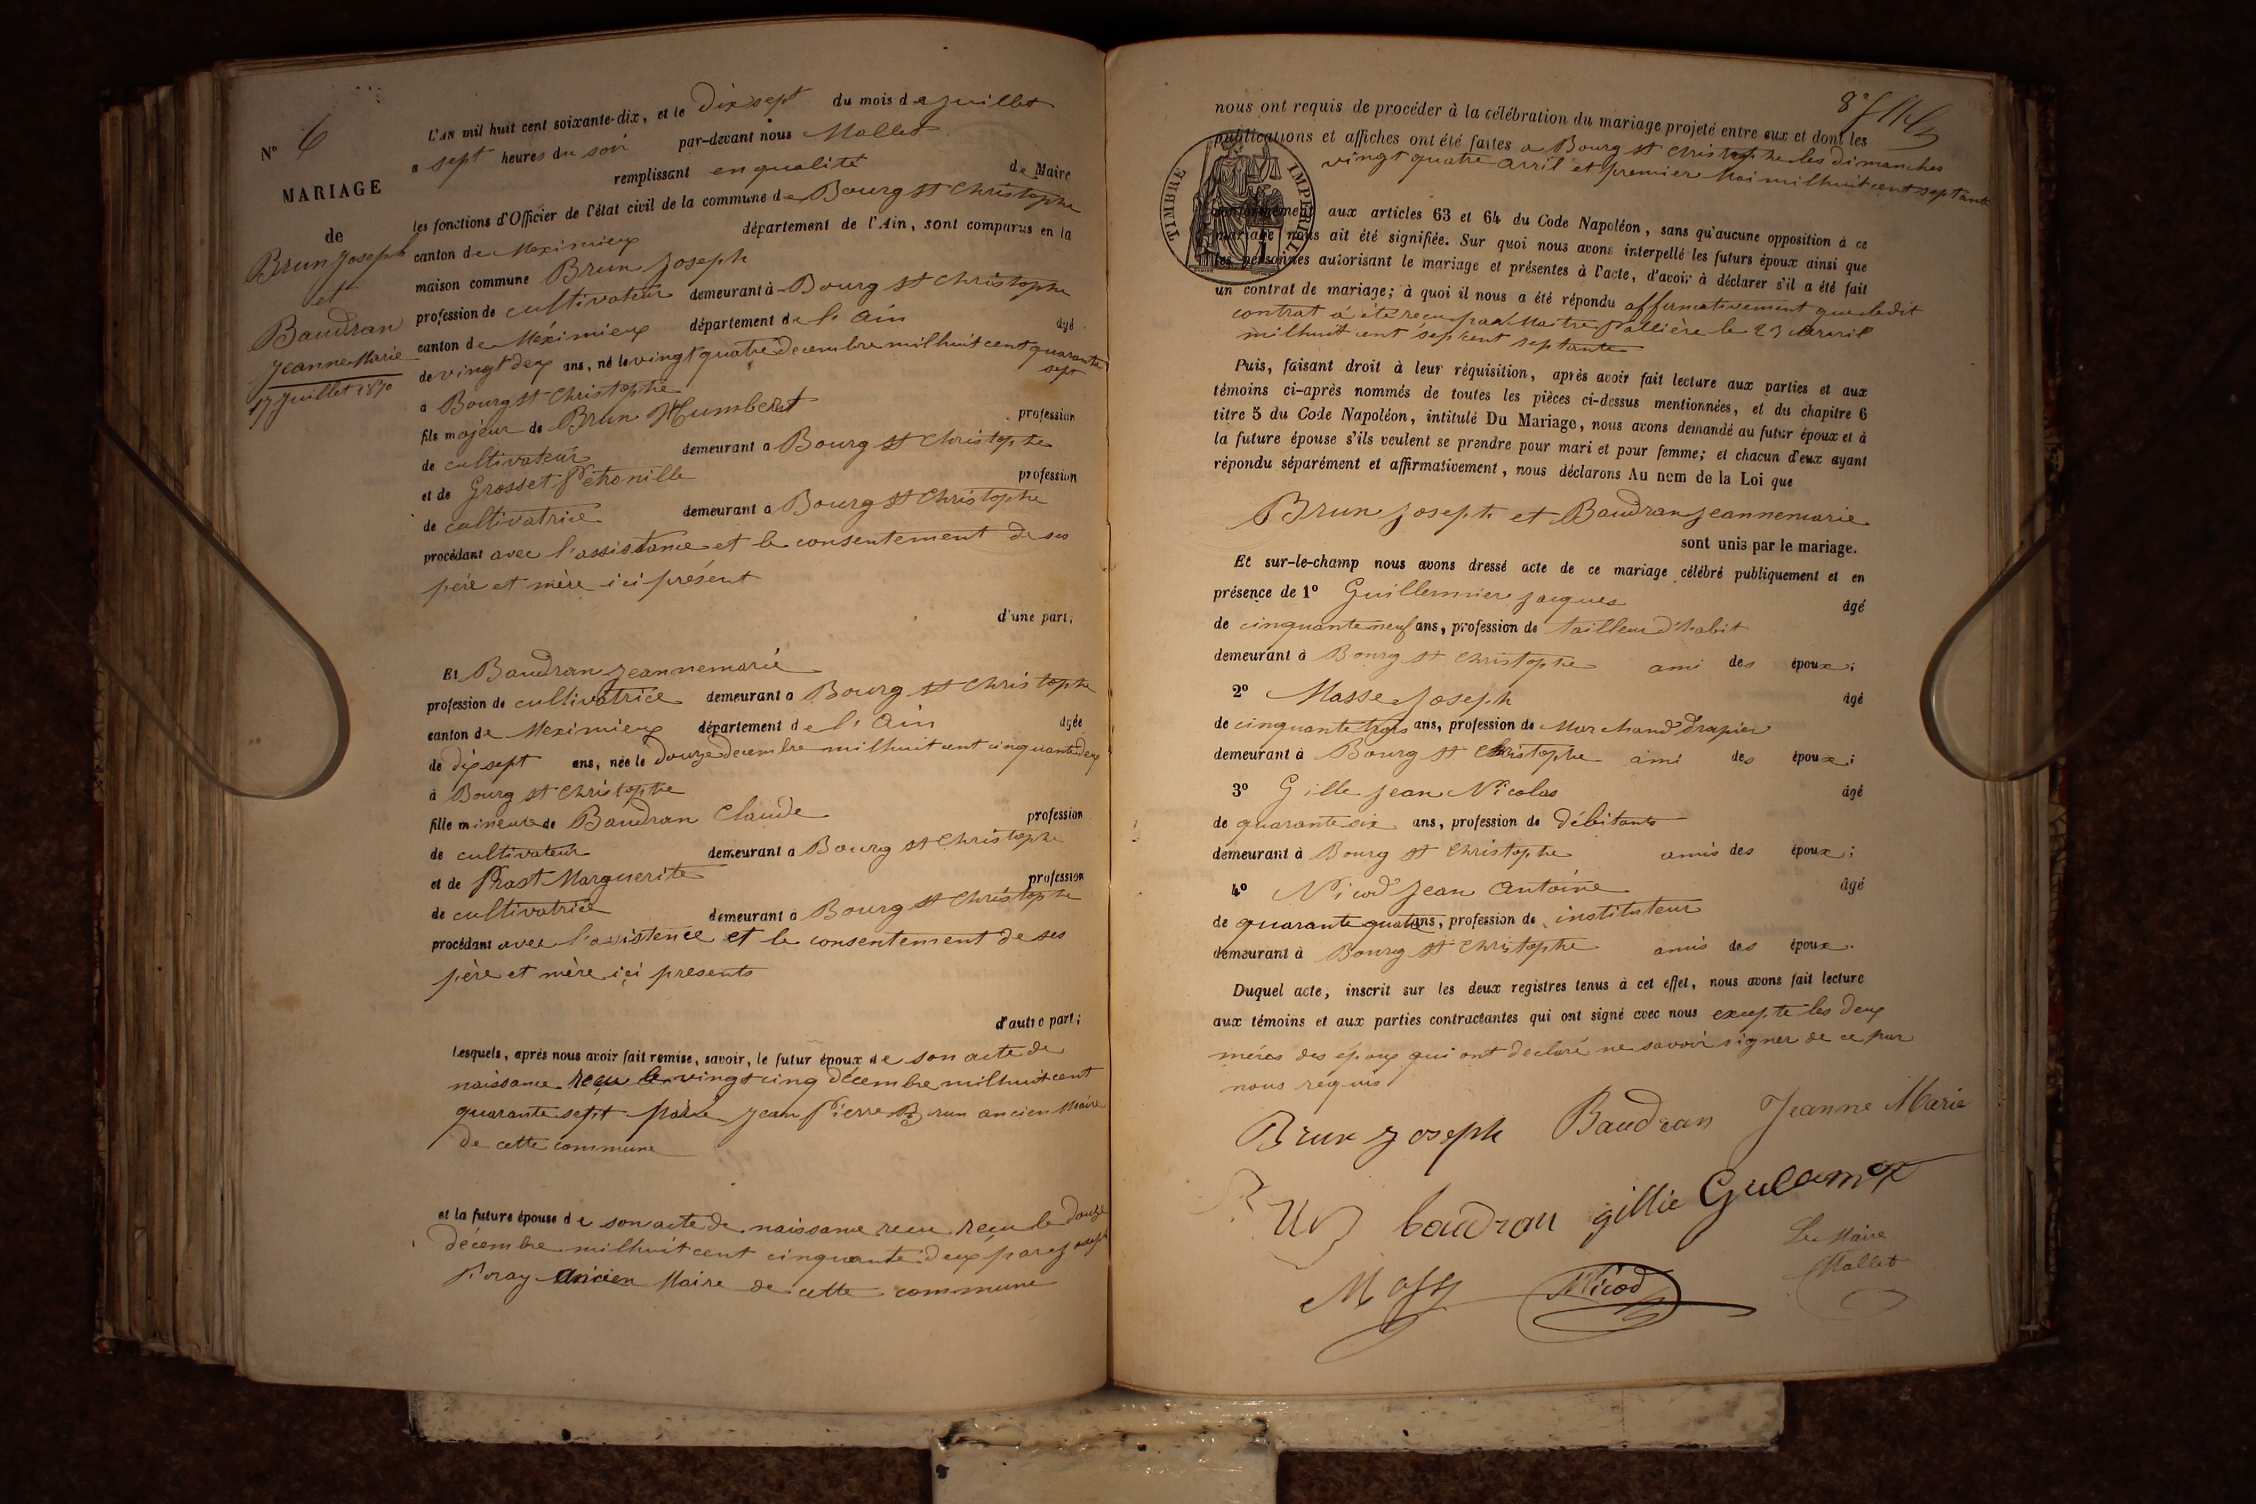 N° 6
MARIAGE
de
Brun Joseph
et
Baudran
Jeanne Marie
17 Juillet 1870
L'AN mil huit cent soixante-dix, et le Dix sept du mois de Juillet
a sept heures du soir par-devant nous Mollet
remplissant en qualité de Maire
les fonctions d'Officier de l'état civil de la commune de Bourg St Christophe
canton de Meximieux département de l'Ain, sont comparus en la
maison commune Brun Joseph
profession de cultivateur demeurant à Bourg St Christophe
canton de Méximieux département de l'Ain âgé
de vingt deux ans, né le vingt quatre decembre mil huit cent quarante
sept
a Bourg St Christophe
fils majeur de Brun Humbert profession
de cultivateur demeurant a Bourg St Christophe
et de Grosset Pétronille profession
de cultivatrice demeurant a Bourg St Christophe
procédant avec l'assistance et le consentement de ses
père et mère ici présent
d'une part;
Et Baudran Jeannemarie
profession de cultivatrice demeurant a Bourg St Christophe
canton de Meximieux département de l'Ain âgée
de dix sept ans, née le douze decembre mil huit cent cinquante deux
à Bourg St Christophe
fille mineure de Baudran Claude profession
de cultivateur demeurant a Bourg St Christophe
et de Prost Marguerite profession
de cultivatrice demeurant à Bourg St Christophe
procédant avec l'assistence et le consentement de ses
père et mère içi presents
d'autre part;
Lesquels, après nous avoir fait remise, savoir, le futur époux de son acte de
naissance reçu le vingt cinq décembre mil huit cent
quarante sept par Jean Pierre Brun ancien Maire
de cette commune
et la future épouse de son acte de naissance recu recu le douze
décembre mil huit cent cinquante deux par Joseph
ancien Maire de cette commune
nous ont requis de procéder à la célébration du mariage projeté entre eux et dont les
publications et affiches ont été faites a Bourg St Christophe les dimanches
vingt quatre avril et premier Mai mil huit cent septante
conformément aux articles 63 et 64 du Code Napoléon, sans qu'aucune opposition à ce
mariage nous ait été signifiée. Sur quoi nous avons interpellé les futurs époux ainsi que
les personnes autorisant le mariage et présentes à l'acte, d'avoir à déclarer s'il a été fait
un contrat de mariage; à quoi il nous a été répondu affirmativement que ledit
contrat a été reçu par Maître Pallière le 23 avril
mil huit cent sept cent septante
TIMBRE IMPERIAL
Puis, faisant droit à leur réquisition, après avoir fait lecture aux parties et aux
témoins ci-après nommés de toutes les pièces ci-dessus mentionnées, et du chapitre 6
titre 5 du Code Napoléon, intitulé Du Mariage, nous avons demandé au futur époux et à
la future épouse s'ils veulent se prendre pour mari et pour femme; et chacun d'eux ayant
répondu séparément et affirmativement, nous déclarons Au nom de la Loi que
Brun Joseph et Baudran Jeannemarie
sont unis par le mariage.
Et sur-le-champ nous avons dressé acte de ce mariage célébré publiquement et en
présence de 1° Guillermier Jacques âgé
de cinquante neuf ans, profession de tailleur d'habit
demeurant à Bourg St Christophe ami des époux;
2° Masse Joseph âgé
de cinquante trois ans, profession de Marchand Drapier
demeurant à Bourg St Christophe ami des époux;
3° Gille Jean Nicolas âgé
de quarante six ans, profession de Débitants
demeurant à Bourg St Christophe amis des époux;
4° Nicod Jean Antoine âgé
de quarante quatre ans, profession de instituteur
demeurant à Bourg St Christophe amis des époux.
Duquel acte, inscrit sur les deux registres tenus à cet effet, nous avons fait lecture
aux témoins et aux parties contractantes qui ont signé avec nous excepte les deux
mères des époux qui ont declaré ne savoir signer de ce par
nous requis
Brun Joseph Baudran Jeanne Marie
baudran gillie
Le Maire
Mollet
Nicod